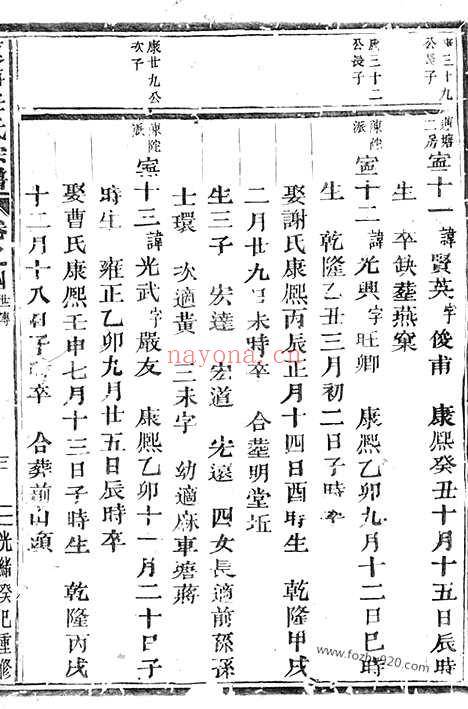 康三十九
公長子
康三十二
公長子
康廿九公
次子
二房
寍十一 諱賢英字俊甫 康熙癸丑十月十五日辰時
生 卒缺塟燕窠
陳陀
派
寍十二 諱光興字旺卿 康熙乙卯九月十二日巳時
生 乾隆乙丑三月初二日子時卒
娶謝氏康熙丙辰正月十四日酉時生 乾隆甲戌
二月廿九日未時卒 合塟明堂坵
生三子 宏達 宏道 宏遠 四女長適前孫孫
士環 次適黃 三未字 幼適麻車塘蔣
陳陀
派
寍十三 諱光武字嚴友 康熙乙卯十一月二十日子
時生 雍正乙卯九月廿五日辰時卒
娶曹氏康熙壬申七月十三日子時生 乾隆丙戌
十二月十八日子時卒 合葬前山頭
氏宗譜 卷之四 世傳 三 光緒癸巳重修
nayona.cn
www.fozhu920.com